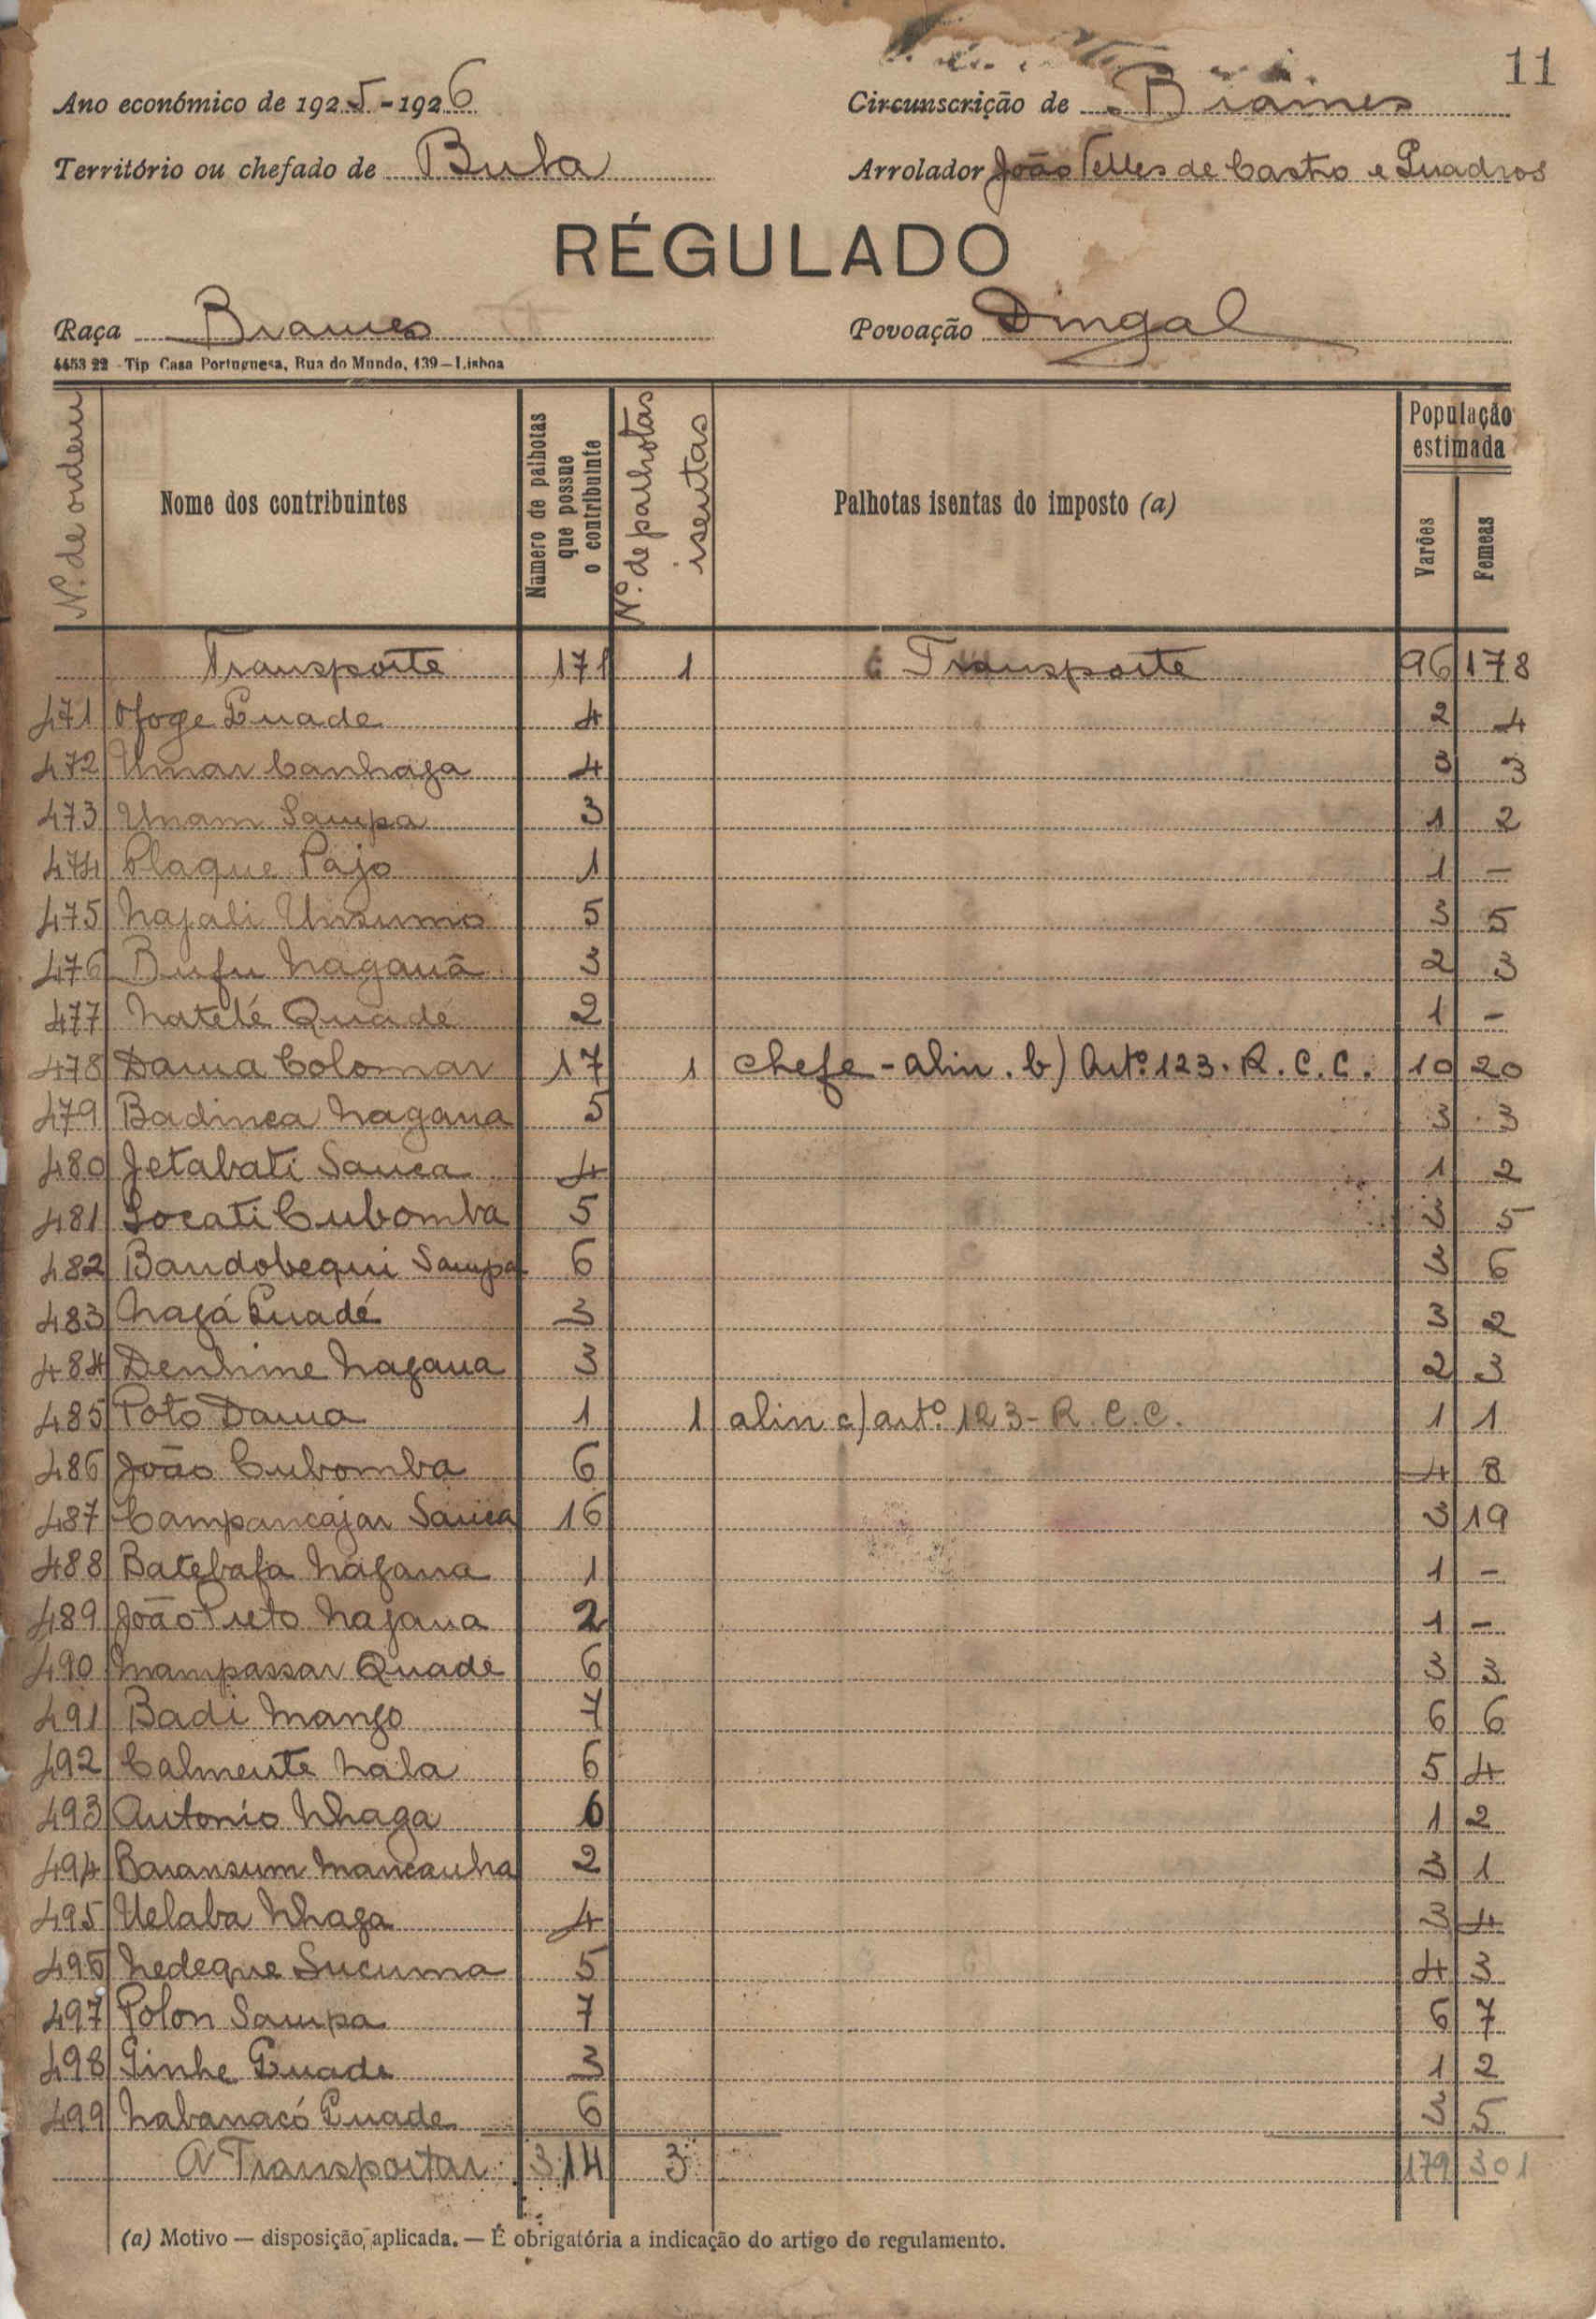 11
Ano económico de 1925-1926
Circunscrição de Brames
Território ou chefado de Bula
Arrolador João Telles de Castro e Quadros
RÉGULADO
Raça Brames
Povoação Dingal
4453 22 - Tip Casa Portuguesa, Rua do Mundo, 139—Lisboa
N.º de ordem | Nome dos contribuintes | Número de palhotas que possue o contribuinte | Nº. de palhotas isentas | Palhotas isentas do imposto (a) | População estimada Varões Femeas
Transporte 171 1 Transporte 96 178
471 Ofoge Quade 4 2 4
472 Umar Canhaga 4 3 3
473 Unam Sampa 3 1 2
474 Claque Pajo 1 1 –
475 Najali Unsumó 5 3 5
476 Bufu Nagauã 3 2 3
477 Natelé Quadé 2 1 –
478 Dama Colomar 17 1 chefe - alin. b) Artº. 123. R. C. C. 10 20
479 Badinca Nagana 5 3 3
480 Jetabati Sanca 4 1 2
481 Locati Cubomba 5 3 5
482 Bandobequi Sampa 6 3 6
483 Nagá Quadé 3 3 2
484 Denhime Nagana 3 2 3
485 Poto Dama 1 1 alin c) artº. 123 - R. C. C. 1 1
486 João Cubomba 6 4 8
487 Campancajar Sanca 16 3 19
488 Batebafa Nagana 1 1 –
489 João Preto Nagana 2 1 –
490 Mampassar Quade 6 3 3
491 Badi Mango 7 6 6
492 Calmente Nala 6 5 4
493 Antonio Nhaga 6 1 2
494 Baransum Mancanha 2 3 1
495 Uelaba Nhaga 4 3 4
496 Nedeque Sucuma 5 4 3
497 Polon Sampa 7 6 7
498 Pinhe Quade 3 1 2
499 Nabanacó Quade 6 3 5
A Transportar 314 3 179 301
(a) Motivo — disposição aplicada. — É obrigatória a indicação do artigo do regulamento.